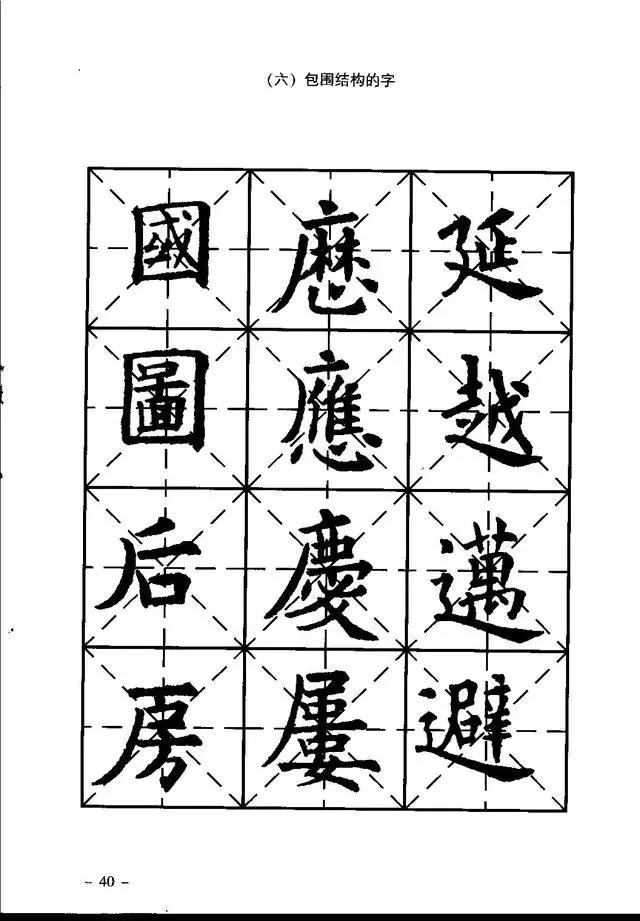 （六）包围结构的字
國 延
圖 應 越
后 慶 邁
房 屢 避
- 40 -